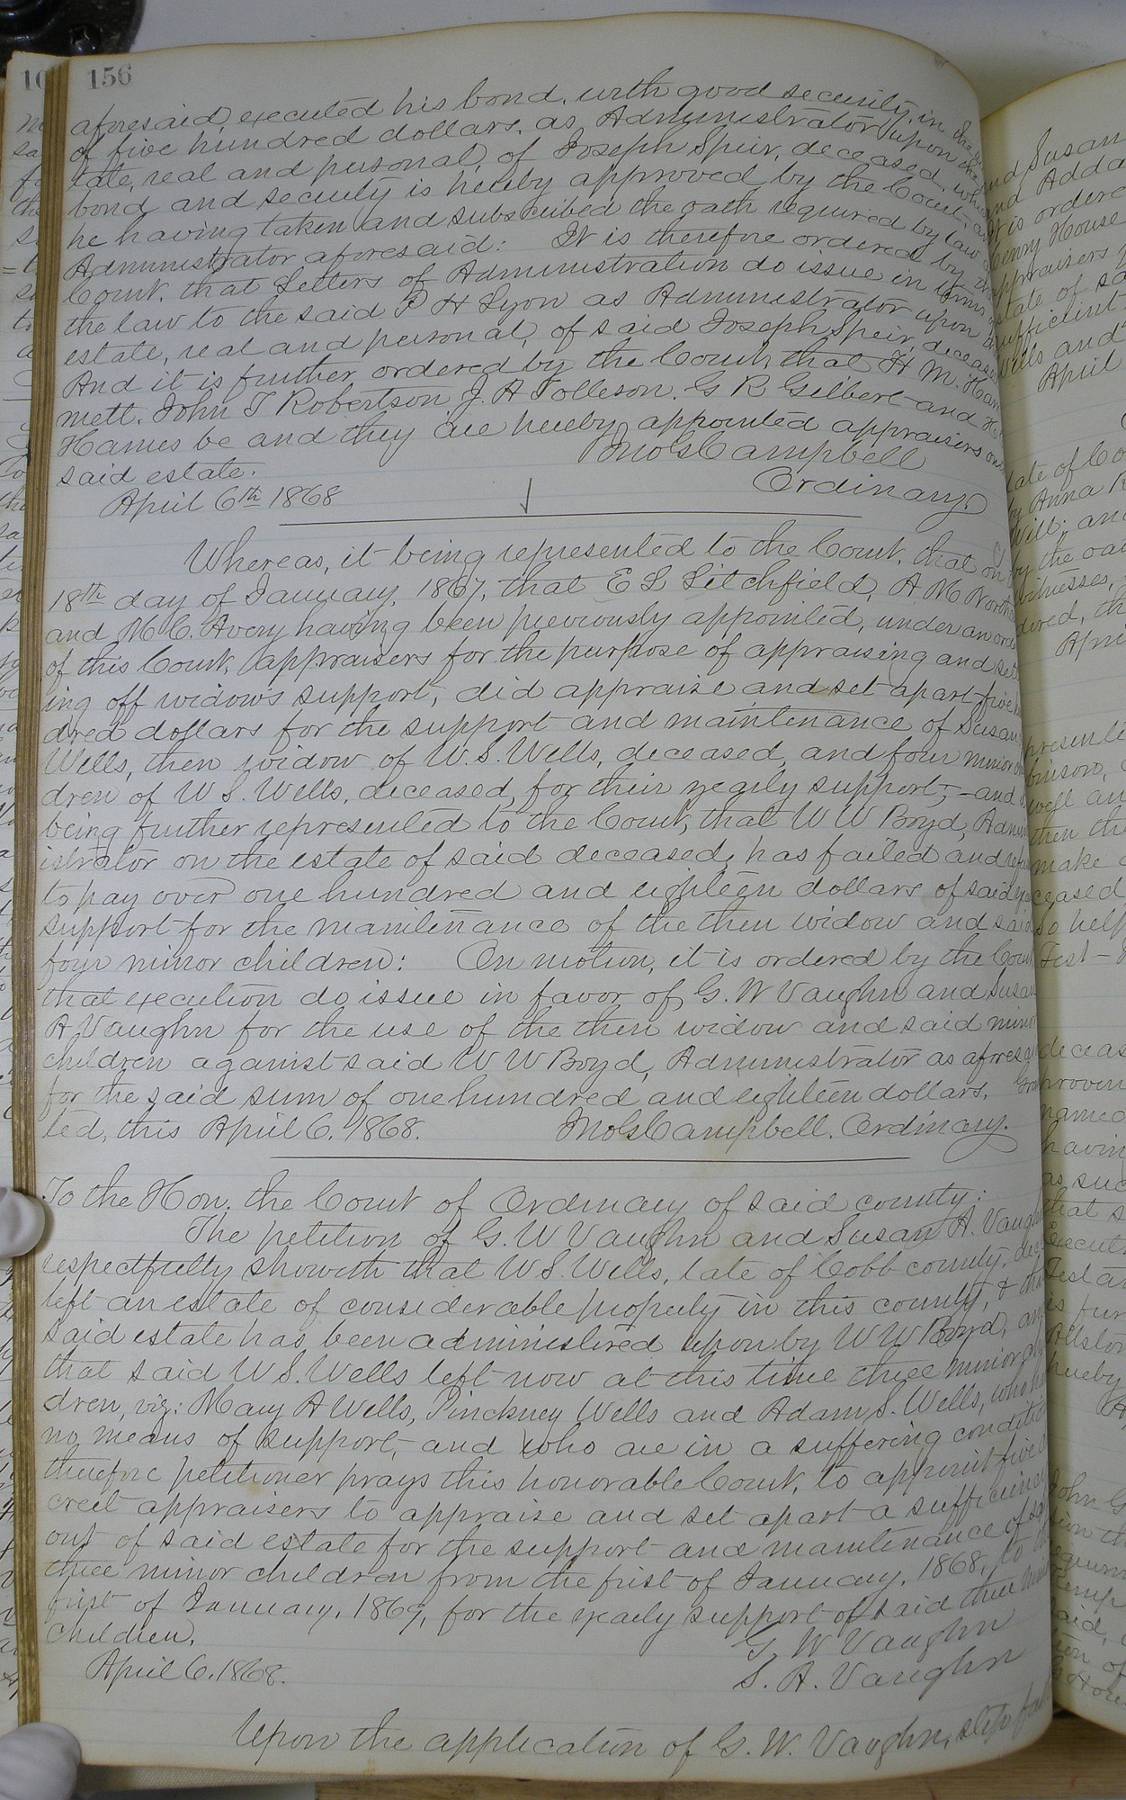 156
aforesaid, executed his bond, with good security, in the
of five hundred dollars, as Administrator upon the
tate, real and personal, of Joseph Speir, deceased, which
bond and security is hereby approved by the Court, and
he having taken and subscribed the oath required by law
Administrator aforesaid: It is therefore ordered by the
Court, that Letters of Administration do issue in terms
the law to the said P H Lyon as Administrator upon
estate, real and personal, of said Joseph Speir, deceas
And it is further ordered by the Court, that H M. Ham
mett, John T Robertson, J. A Tolleson, G R Gilbert and
Hames be and they are hereby appointed appraisers on
said estate.
Jno G Campbell
April 6th 1868
Ordinary.
Whereas, it being represented to the Court, that on
18th day of January, 1867, that E L Litchfield, A M North
and M C. Avery having been previously appointed, under an order
of this Court, appraisers for the purpose of appraising and set
ing off widow's support, did appraise and set apart five
dred dollars for the support and maintenance of Susan
Wells, then widow of W. S. Wells, deceased, and four minor
dren of W S. Wells, deceased, for their yearly support; and
being further represented to the Court, that W W Boyd, Admin
istrator on the estate of said deceased, has failed and
to pay over one hundred and eighteen dollars of said
support for the maintenance of the then widow and said
four minor children: On motion, it is ordered by the Court
that execution do issue in favor of G. W Vaughn and Susan
A Vaughn for the use of the then widow and said minor
children against said W W Boyd, Administrator as aforesaid
for the said sum of one hundred and eighteen dollars. Gran
ted, this April 6, 1868. Jno G Campbell. Ordinary.
To the Hon. the Court of Ordinary of said county:
The petition of G. W Vaughn and Susan A. Vaughn
respectfully showeth that W S. Wells, late of Cobb county, dec
left an estate of considerable property in this county, & that
said estate has been administered upon by W W Boyd, and
that said W S. Wells left now at this time three minor
dren, viz: Mary A Wells, Pinckney Wells and Adam S. Wells, who
no means of support, and who are in a suffering condition
therefore petitioner prays this honorable Court, to appoint five
creet appraisers to appraise and set apart a sufficiency
out of said estate for the support and maintenance of
three minor children from the first of January, 1868, to the
first of January, 1869, for the yearly support of said three minor
children.
G. W Vaughn
April 6, 1868.
S. A. Vaughn
Upon the application of G. W. Vaughn, step